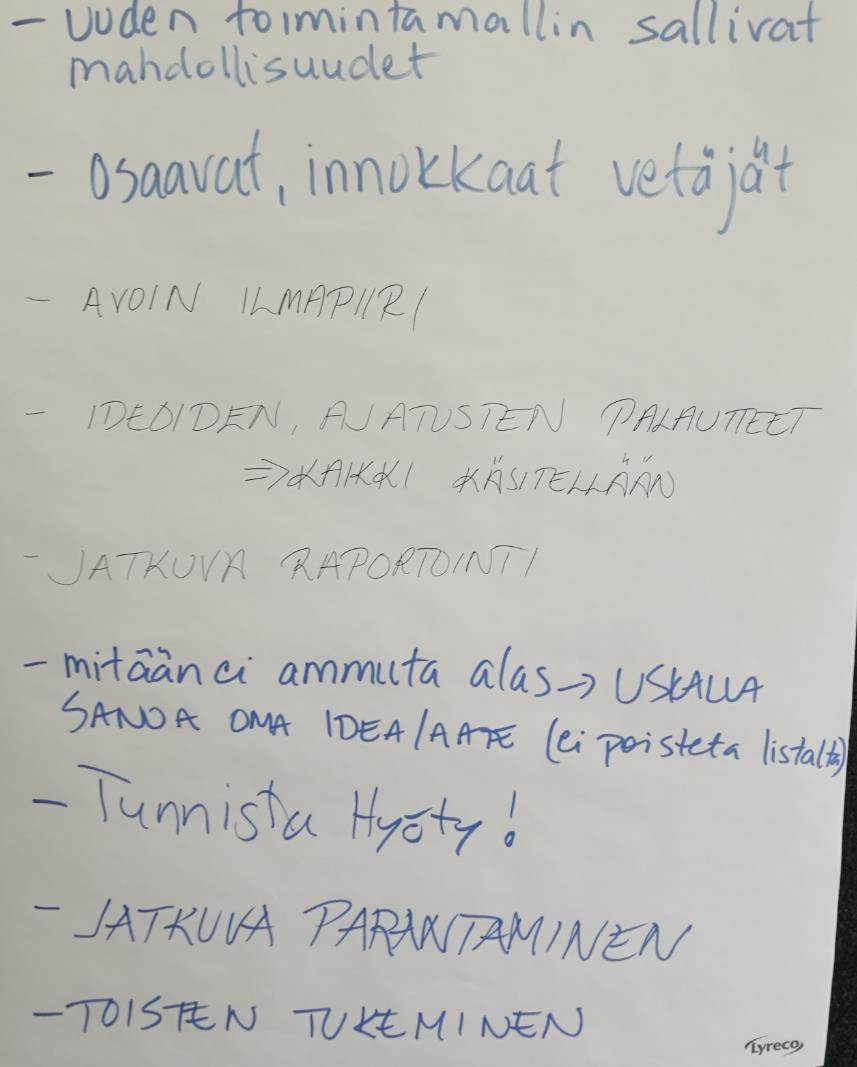 - uuden toimintamallin sallivat
mahdollisuudet
- osaavat, innokkaat vetäjät
- AVOIN ILMAPIIRI
- IDEOIDEN, AJATUSTEN PALAUTTEET
=> KAIKKI KÄSITELLÄÄN
- JATKUVA RAPORTOINTI
- mitään ei ammuta alas -> USKALLA
SANOA OMA IDEA/AATE (ei poisteta listalta)
- Tunnista Hyöty!
- JATKUVA PARANTAMINEN
- TOISTEN TUKEMINEN
Lyreco